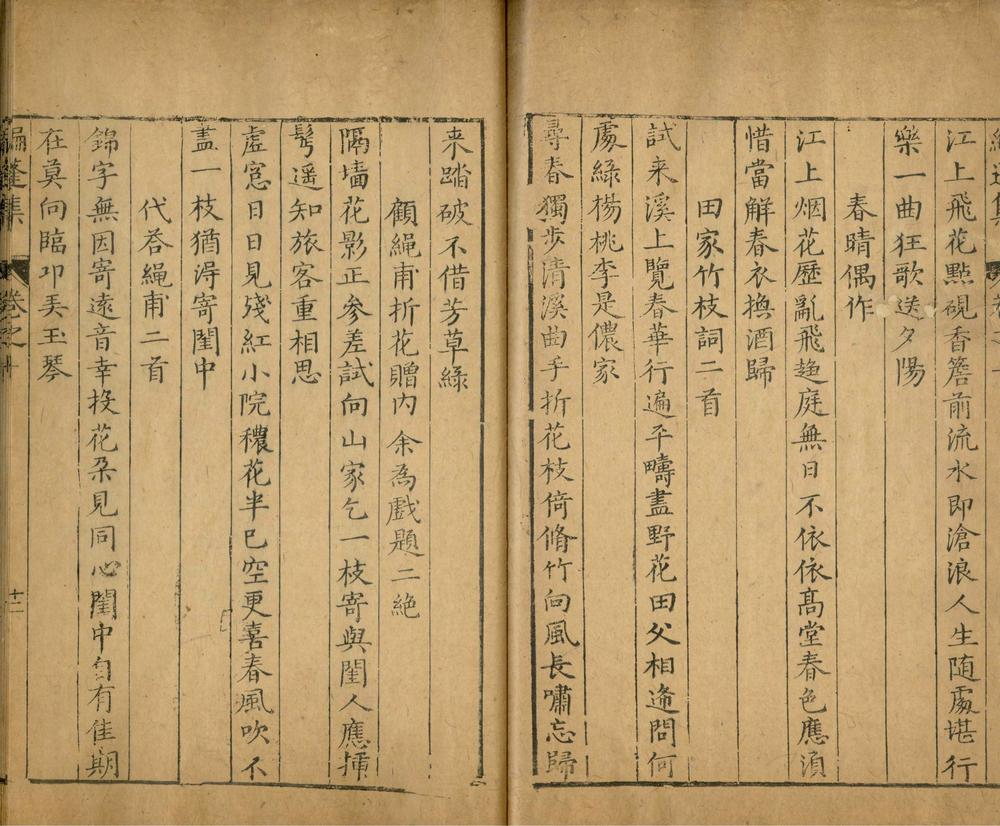 江上飛花點硯香簷前流水即滄浪人生随處堪行
樂一曲狂歌送夕陽
春晴偶作
江上烟花歷亂飛趍庭無日不依依髙堂春色應湏
惜當解春衣換酒歸
田家竹枝詞二首
試来溪上覽春華行遍平疇盡野花田父相逄問何
處綠楊桃李是儂家
尋春獨步清溪曲手折花枝倚脩竹向風長嘯忘歸
来踏破不借芳草綠
顧繩甫折花贈内余為戲題二絶
隔墻花影正參差試向山家乞一枝寄與閨人應揷
髩遥知旅客重相思
虚窓日日見殘紅小院穠花半已空更喜春風吹不
盡一枝猶得寄閨中
代荅繩甫二首
錦字無因寄逺音幸投花朶見同心閨中自有佳期
在莫向臨卭弄玉琴
編蓬集
卷之十
十二